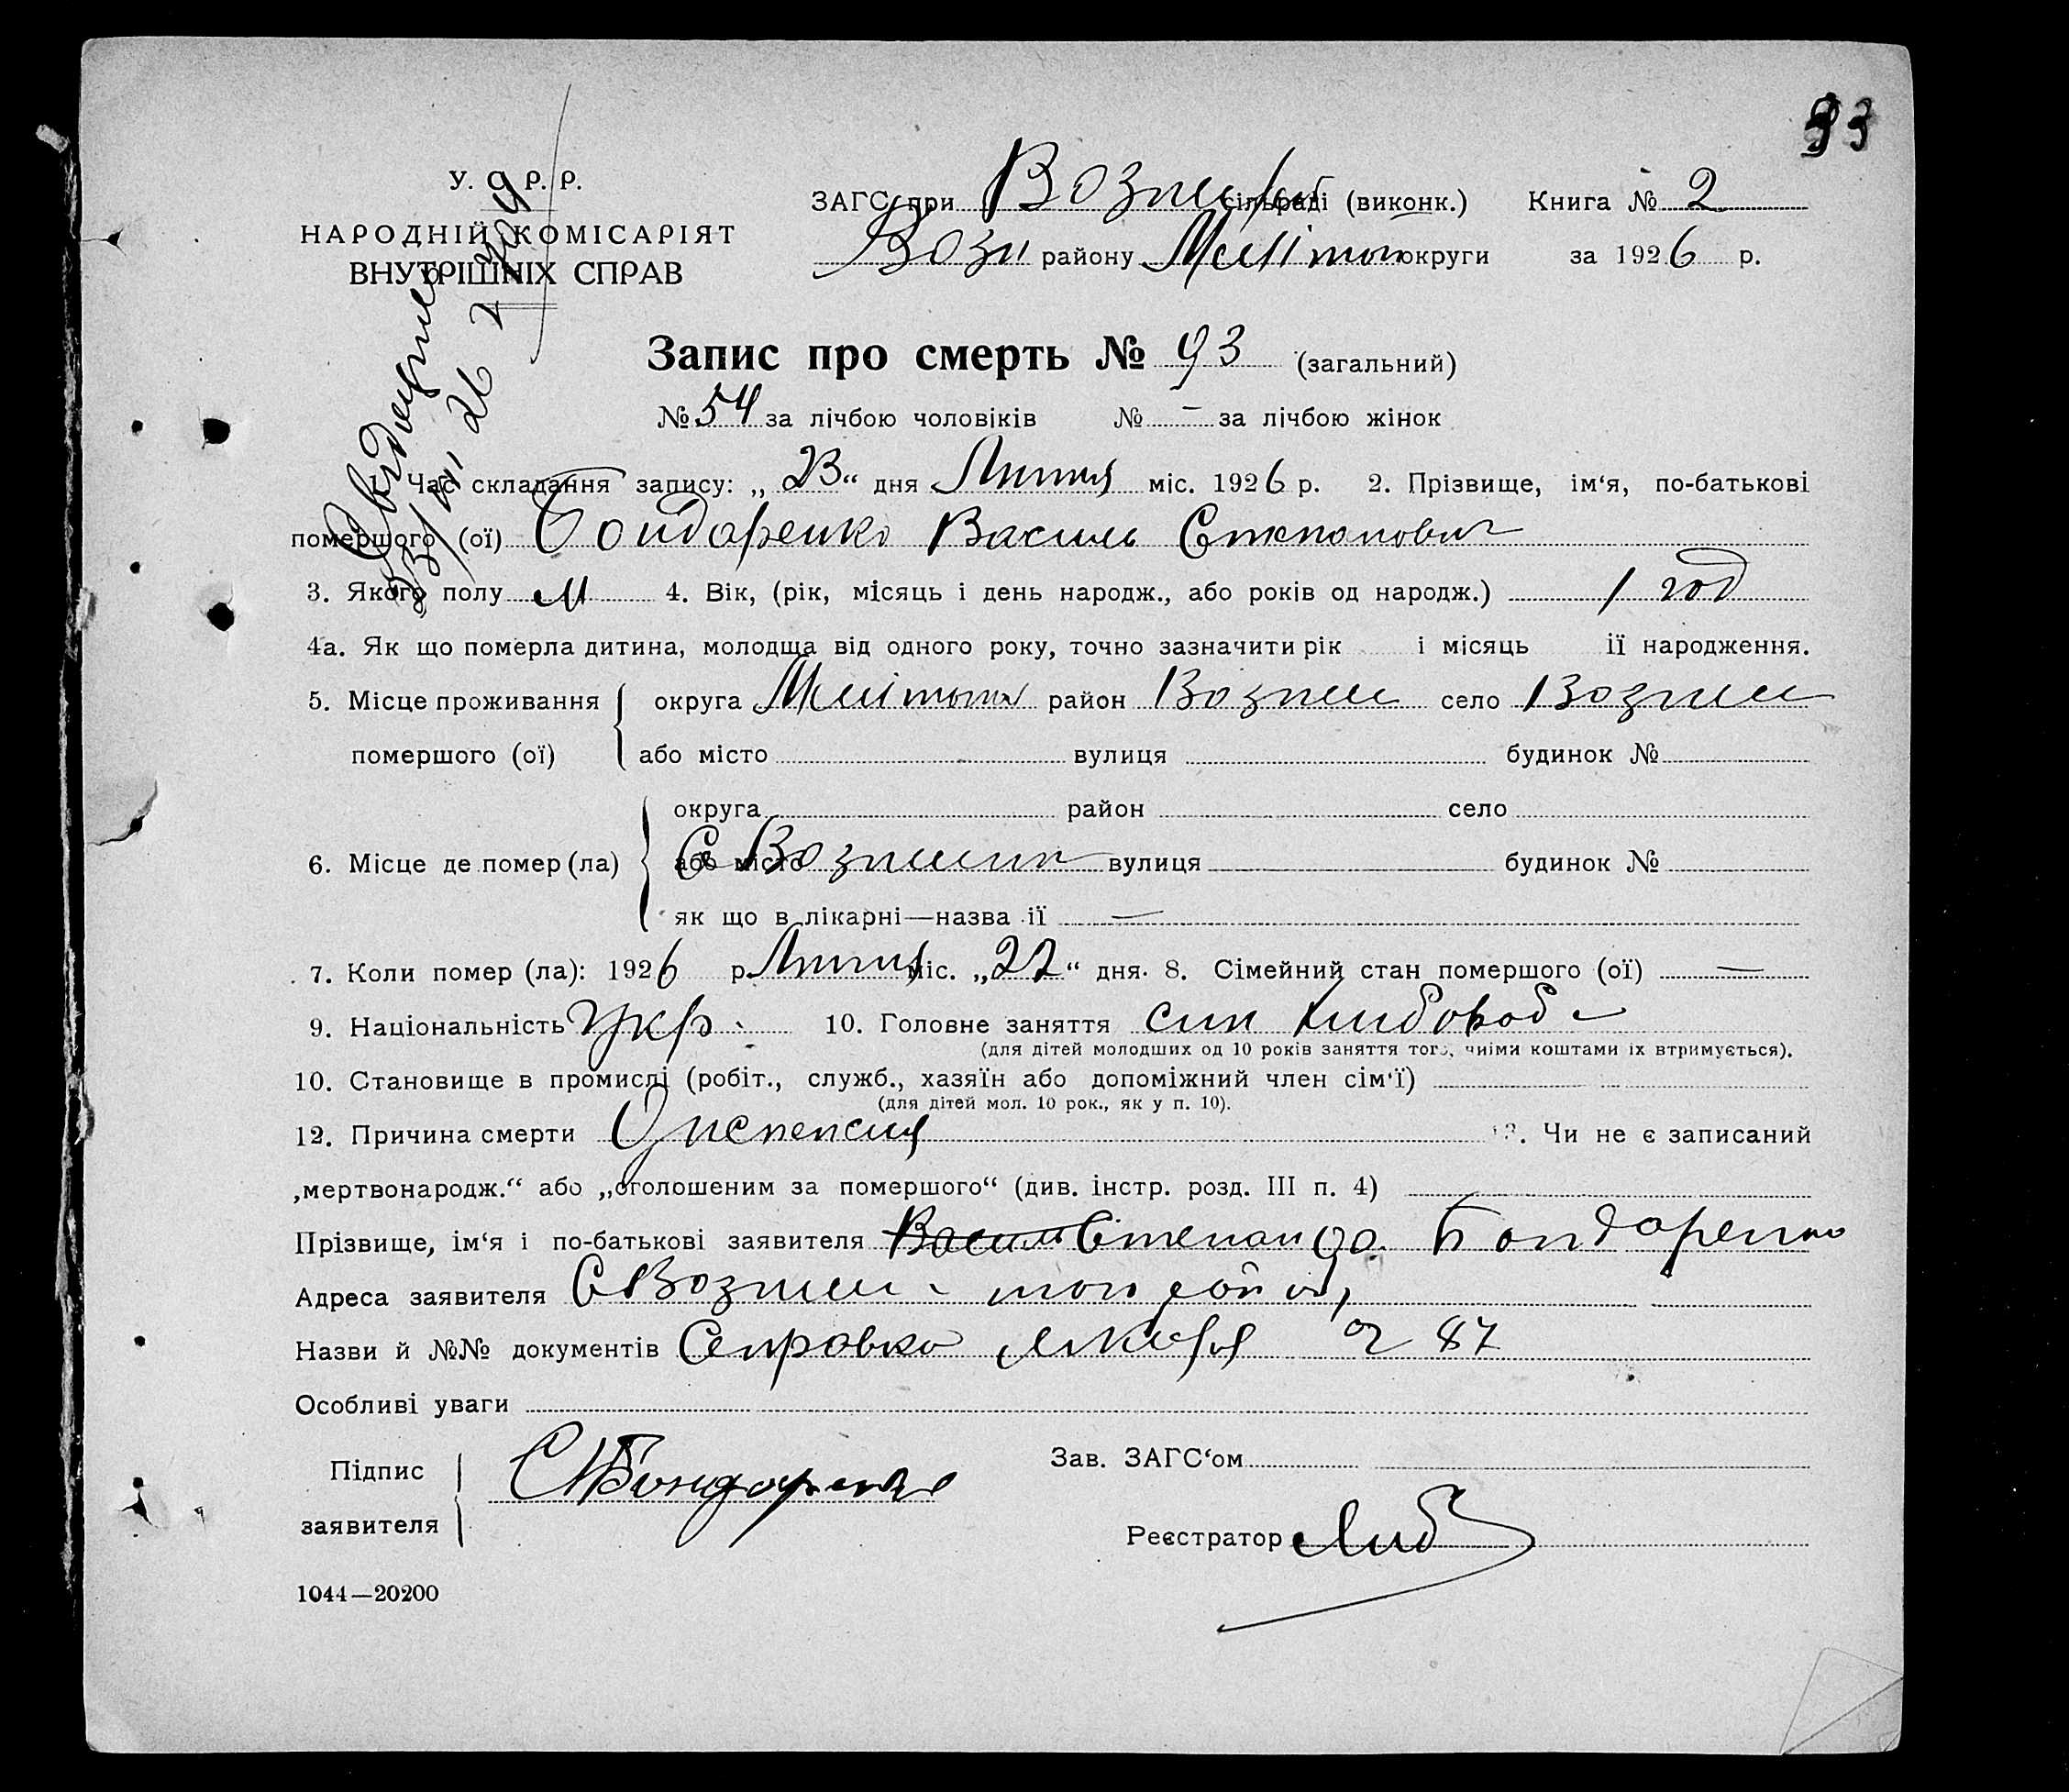 93
У. С. Р. Р.
НАРОДНІЙ КОМІСАРІЯТ
ВНУТРІШНІХ СПРАВ
ЗАГС при Вознес сільраді (виконк.) Книга № 2
Возн району Мелітоп округи за 1926 р.
Запис про смерть № 93 (загальний)
№ 54 за лічбою чоловіків № – за лічбою жінок
1. Час складання запису: „23“ дня Липня міс. 1926 р. 2. Прізвище, ім‘я, по-батькові
помершого (ої) Бондаренко Василь Степанович
3. Якого полу М 4. Вік, (рік, місяць і день народж., або років од народж.) 1 год
4а. Як що померла дитина, молодща від одного року, точно зазначити рік і місяць її народження.
5. Місце проживання округа Мелітоп район Вознес село Вознес
помершого (ої) або місто вулиця будинок №
округа район село
6. Місце де помер (ла) або місто С Вознесен вулиця будинок №
як що в лікарні—назва її —
7. Коли помер (ла): 1926 р. Липня міс. „22“ дня. 8. Сімейний стан помершого (ої) —
9. Національність Укр. 10. Головне заняття син хлібороба
(для дітей молодших од 10 років заняття того, чиїми коштами їх втримується).
10. Становище в промислі (робіт., служб., хазяїн або допоміжний член сім‘ї)
(для дітей мол. 10 рок., як у п. 10).
12. Причина смерти Диспепсия 13. Чи не є записаний
„мертвонародж.“ або „оголошеним за помершого“ (див. інстр. розд. III п. 4)
Прізвище, ім‘я і по-батькові заявителя Василь Степан Бондаренко
Адреса заявителя С Вознес
Назви й №№ документів Справка лікаря 87
Особливі уваги
Підпис
заявителя
С Бондаренко
Зав. ЗАГС‘ом
Реєстратор
1044—20200